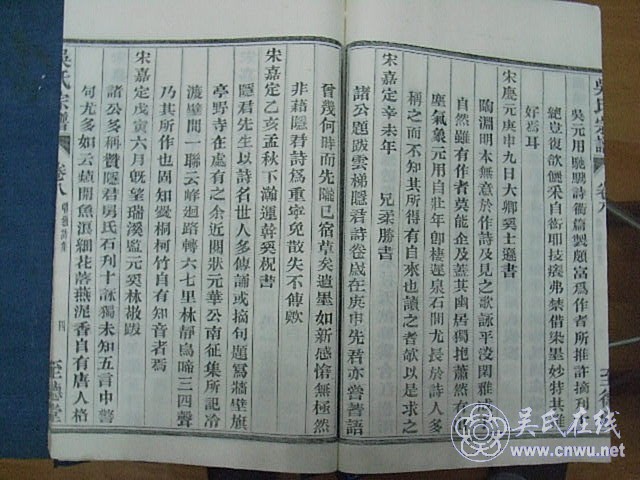 吳氏宗譜
卷八
至德堂
吳元用馳騁詩衢篇製頗富爲作者所推許摘刋
好焉耳
宋慶元庚申九日大卿奚士遜書
陶淵明本無意於作詩及見之歌詠平淡閑雅成
自然雖有作者莫能企及蓋其幽居獨抱蕭然有
塵氣象元用自壯年卽棲遲泉石間尤長於詩人多
稱之而不知其所得有自來也讀之者歟以是求之
宋嘉定辛未年 兄柔勝書
諸公題跋雲梯隱君詩卷歲在庚申先君亦嘗著語
曾幾何時而先隴已宿草矣遺墨如新感愴無極然
非藉隱君詩爲重寧免散失不傳歟
宋嘉定乙亥孟秋下瀚運幹奚祝書
隱君先生以詩名世人多傳誦或摘句題爲牆壁旗
亭野寺在處有之余近閱狀元華公南征集所記冷
渡壁間一聯云峰迴路轉六七里林靜鳥啼三四聲
乃其所作也固知爨桐柯竹自有知音者焉
宋嘉定戊寅六月旣望瑞溪監元奚林敬跋
諸公多稱贊隱君舅氏石刋十詠獨未知五言中警
句尤多如云蘋開魚濵細花落燕泥香自有唐人格
吳氏宗譜
卷八
四
至德堂
吴氏在线
www.cnwu.net